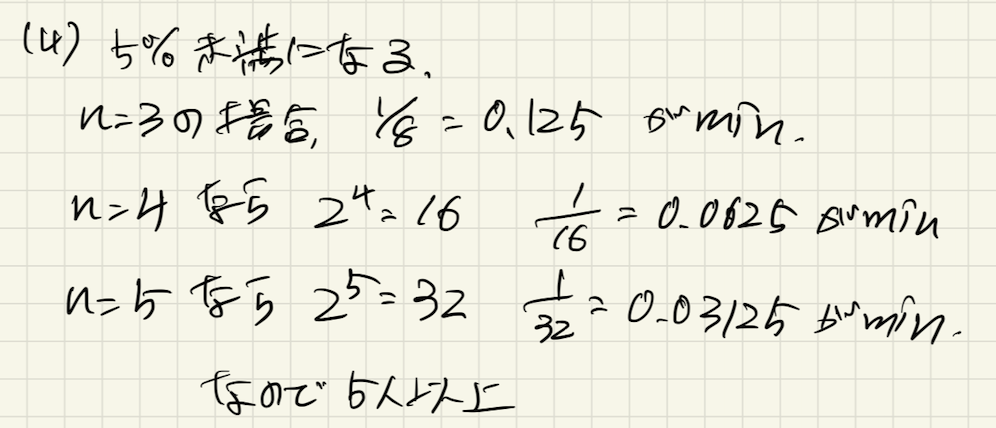 (4) 5%未満になる、
n=3の場合, 1/8 = 0.125 がmin.
n=4 なら 2^4 = 16 1/16 = 0.0625 がmin
n=5 なら 2^5 = 32 1/32 = 0.03125 がmin.
なので 5人以上